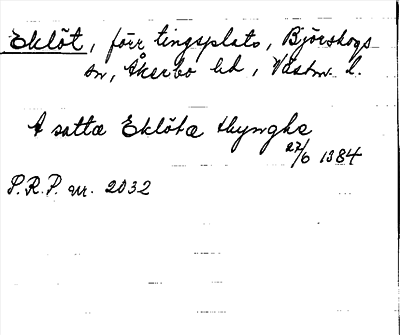 Eklöt, förr tingsplats, Björskogs
sn, Åkerbo hd, Västm. l.
A satta Eklöta thyngha
27/6 1384
S.R.P. nr. 2032